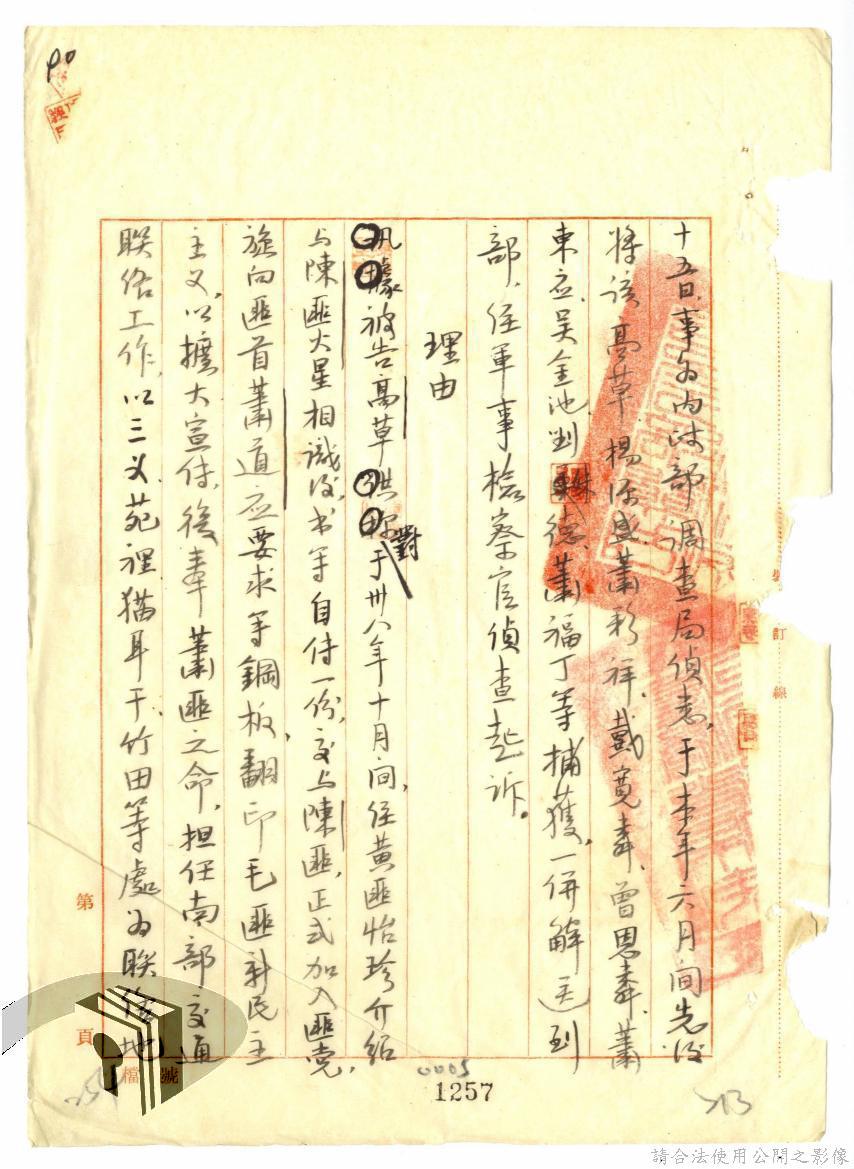 十五日、事為內政部調查局偵悉，于本年六月間先後
將該高草、楊添盛、蕭彩祥、戴寬壽、曾恩壽、蕭
東應、吳金池、劉林德、蕭福丁等捕獲，一併解送到
部，經軍事檢察官偵查起訴。
理由
據被告高草供對于卅八年十月間，經黃匪怡珍介紹
与陳匪火星相識後，書寫自傳一份，交与陳匪，正式加入匪党，
旋向匪首蕭道应要求等鋼板，翻印毛匪新民主
主义，以擴大宣传，後奉蕭匪之命，担任南部交通
联络工作，以三义、苑裡、猫耳干、竹田等處為联络地
裝訂線
第頁
檔號
90
0005
1257
請合法使用公開之影像